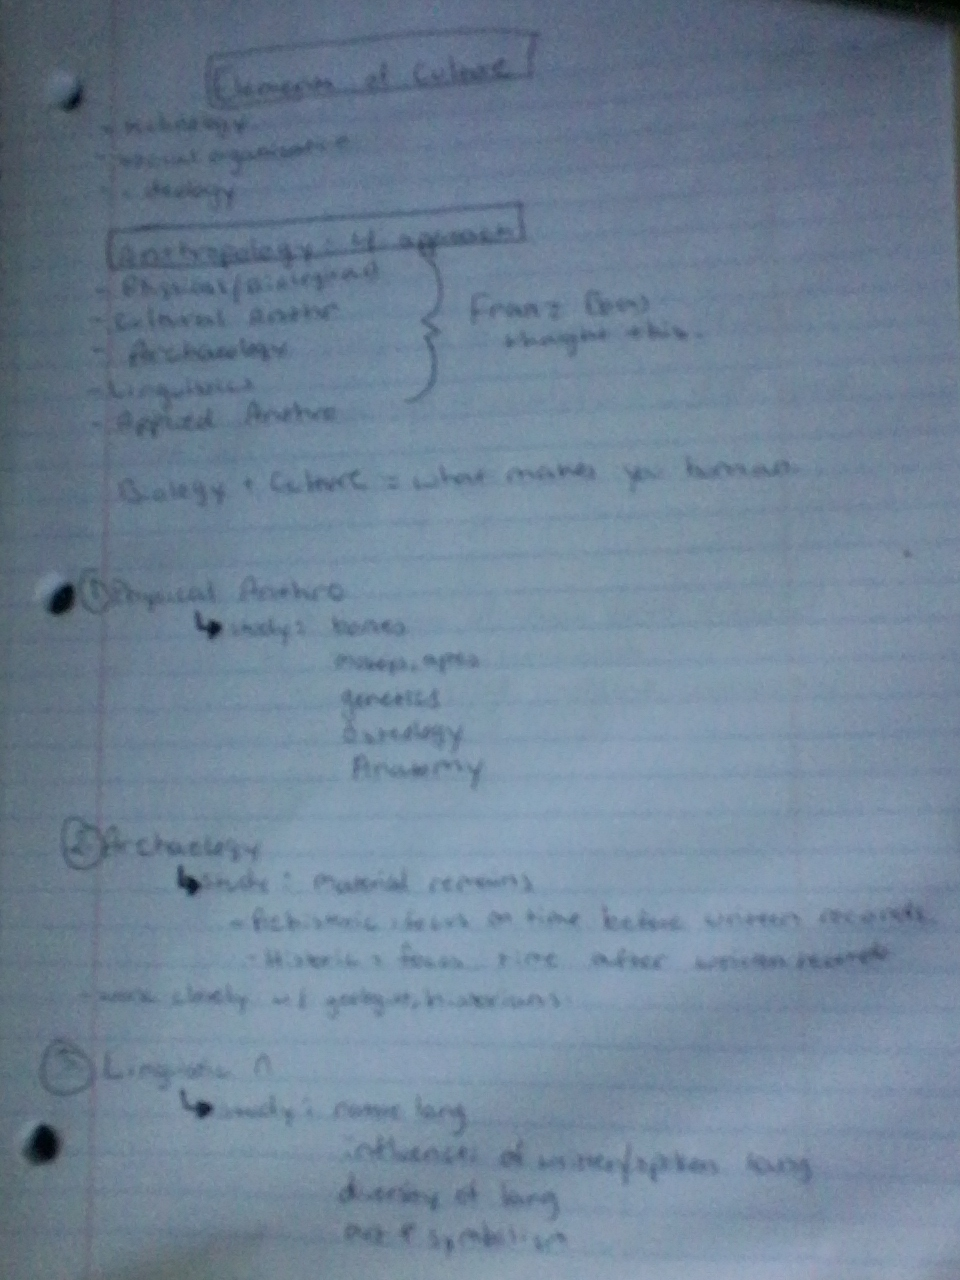 Elements of Culture
- technology
- social organization
- ideology
Anthropology: 4 approach
- Physical/Biological
- Cultural Anthr
- Archaeology
- Linguistics
- Applied Anthro
Franz Boas
thought this.
Biology + Culture = what makes you human
① Physical Anthro
↳ study: bones
apes
genetics
Osteology
Anatomy
② Archaeology
↳ study: material remains
- Prehistoric: focus on time before written records
- Historic: focus time after written records
- work closely w/ geologist, historians.
③ Linguistic A
↳ study: lang
influences of written/spoken lang
diversity of lang
art + symbolism